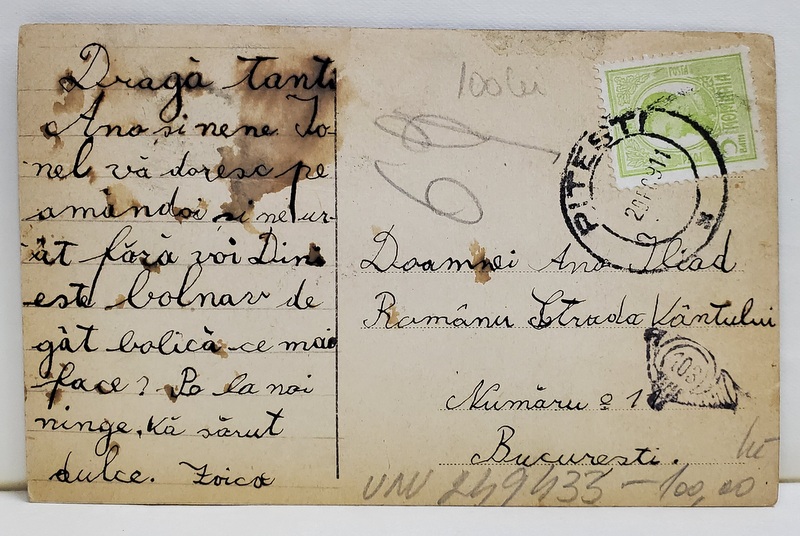 Dragă tanti
Ano și nene Io-
nel vă doresc pe
amândoi și ne ur-
ât fără voi Dini
este bolnav de
gât bolică ce mai
face? Pe la noi
ninge. Vă sărut
dulce. Zoica
100 lei
69
POSTA
ROMANIA
5 BANI
PITESTI
Doamnei Ana Iliad
Românu Strada Vântului
Număru 1
Bucuresti.
UNV 249433 - 100,00